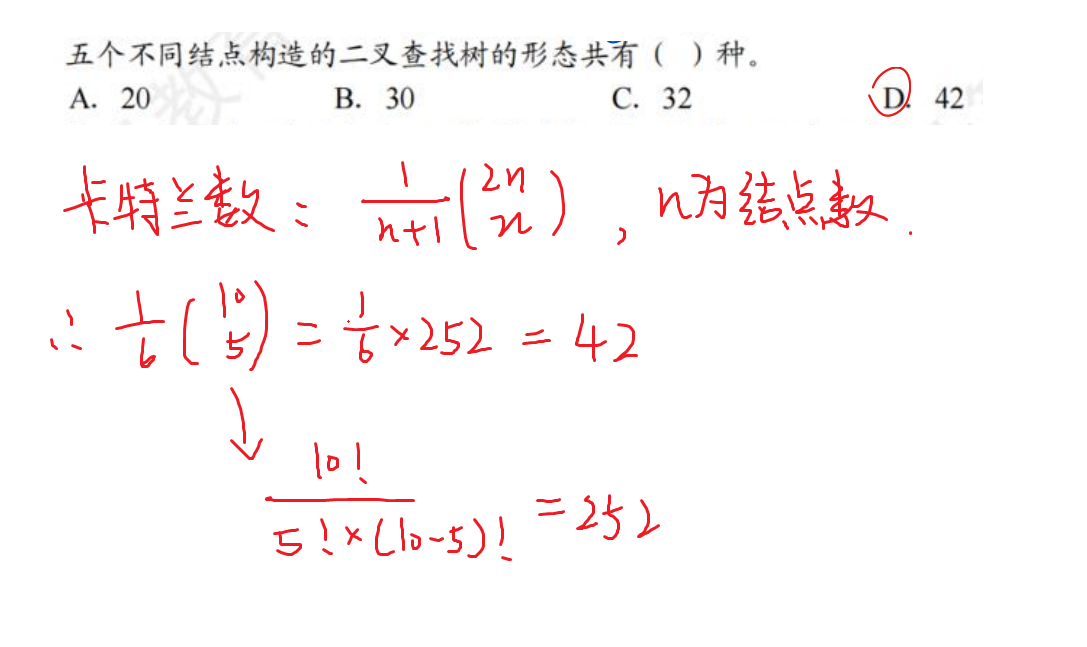 五个不同结点构造的二叉查找树的形态共有（ ）种。
A. 20 B. 30 C. 32 D. 42
卡特兰数： 1/(n+1) (2n n) , n为结点数.
∴ 1/6 (10 5) = 1/6 × 252 = 42
↓
10! / 5!×(10-5)! = 252